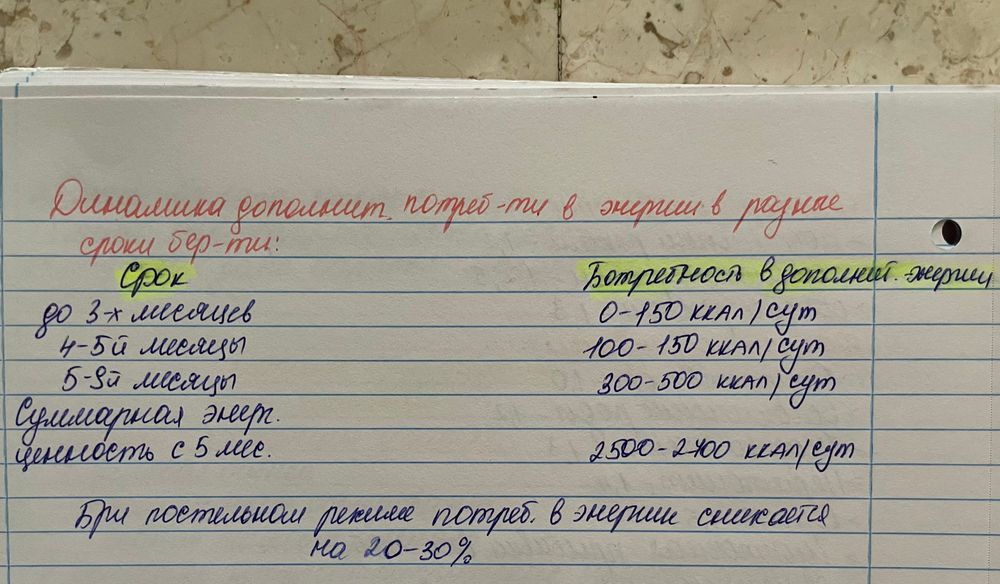 Динамика дополнит. потреб-ти в энергии в разные
сроки бер-ти:
Срок Потребность в дополнит. энергии
до 3-х месяцев 0-150 ккал/сут
4-5й месяцы 100-150 ккал/сут
5-9й месяцы 300-500 ккал/сут
Суммарная энерг.
ценность с 5 мес. 2500-2700 ккал/сут
При постельном режиме потреб. в энергии снижается
на 20-30%